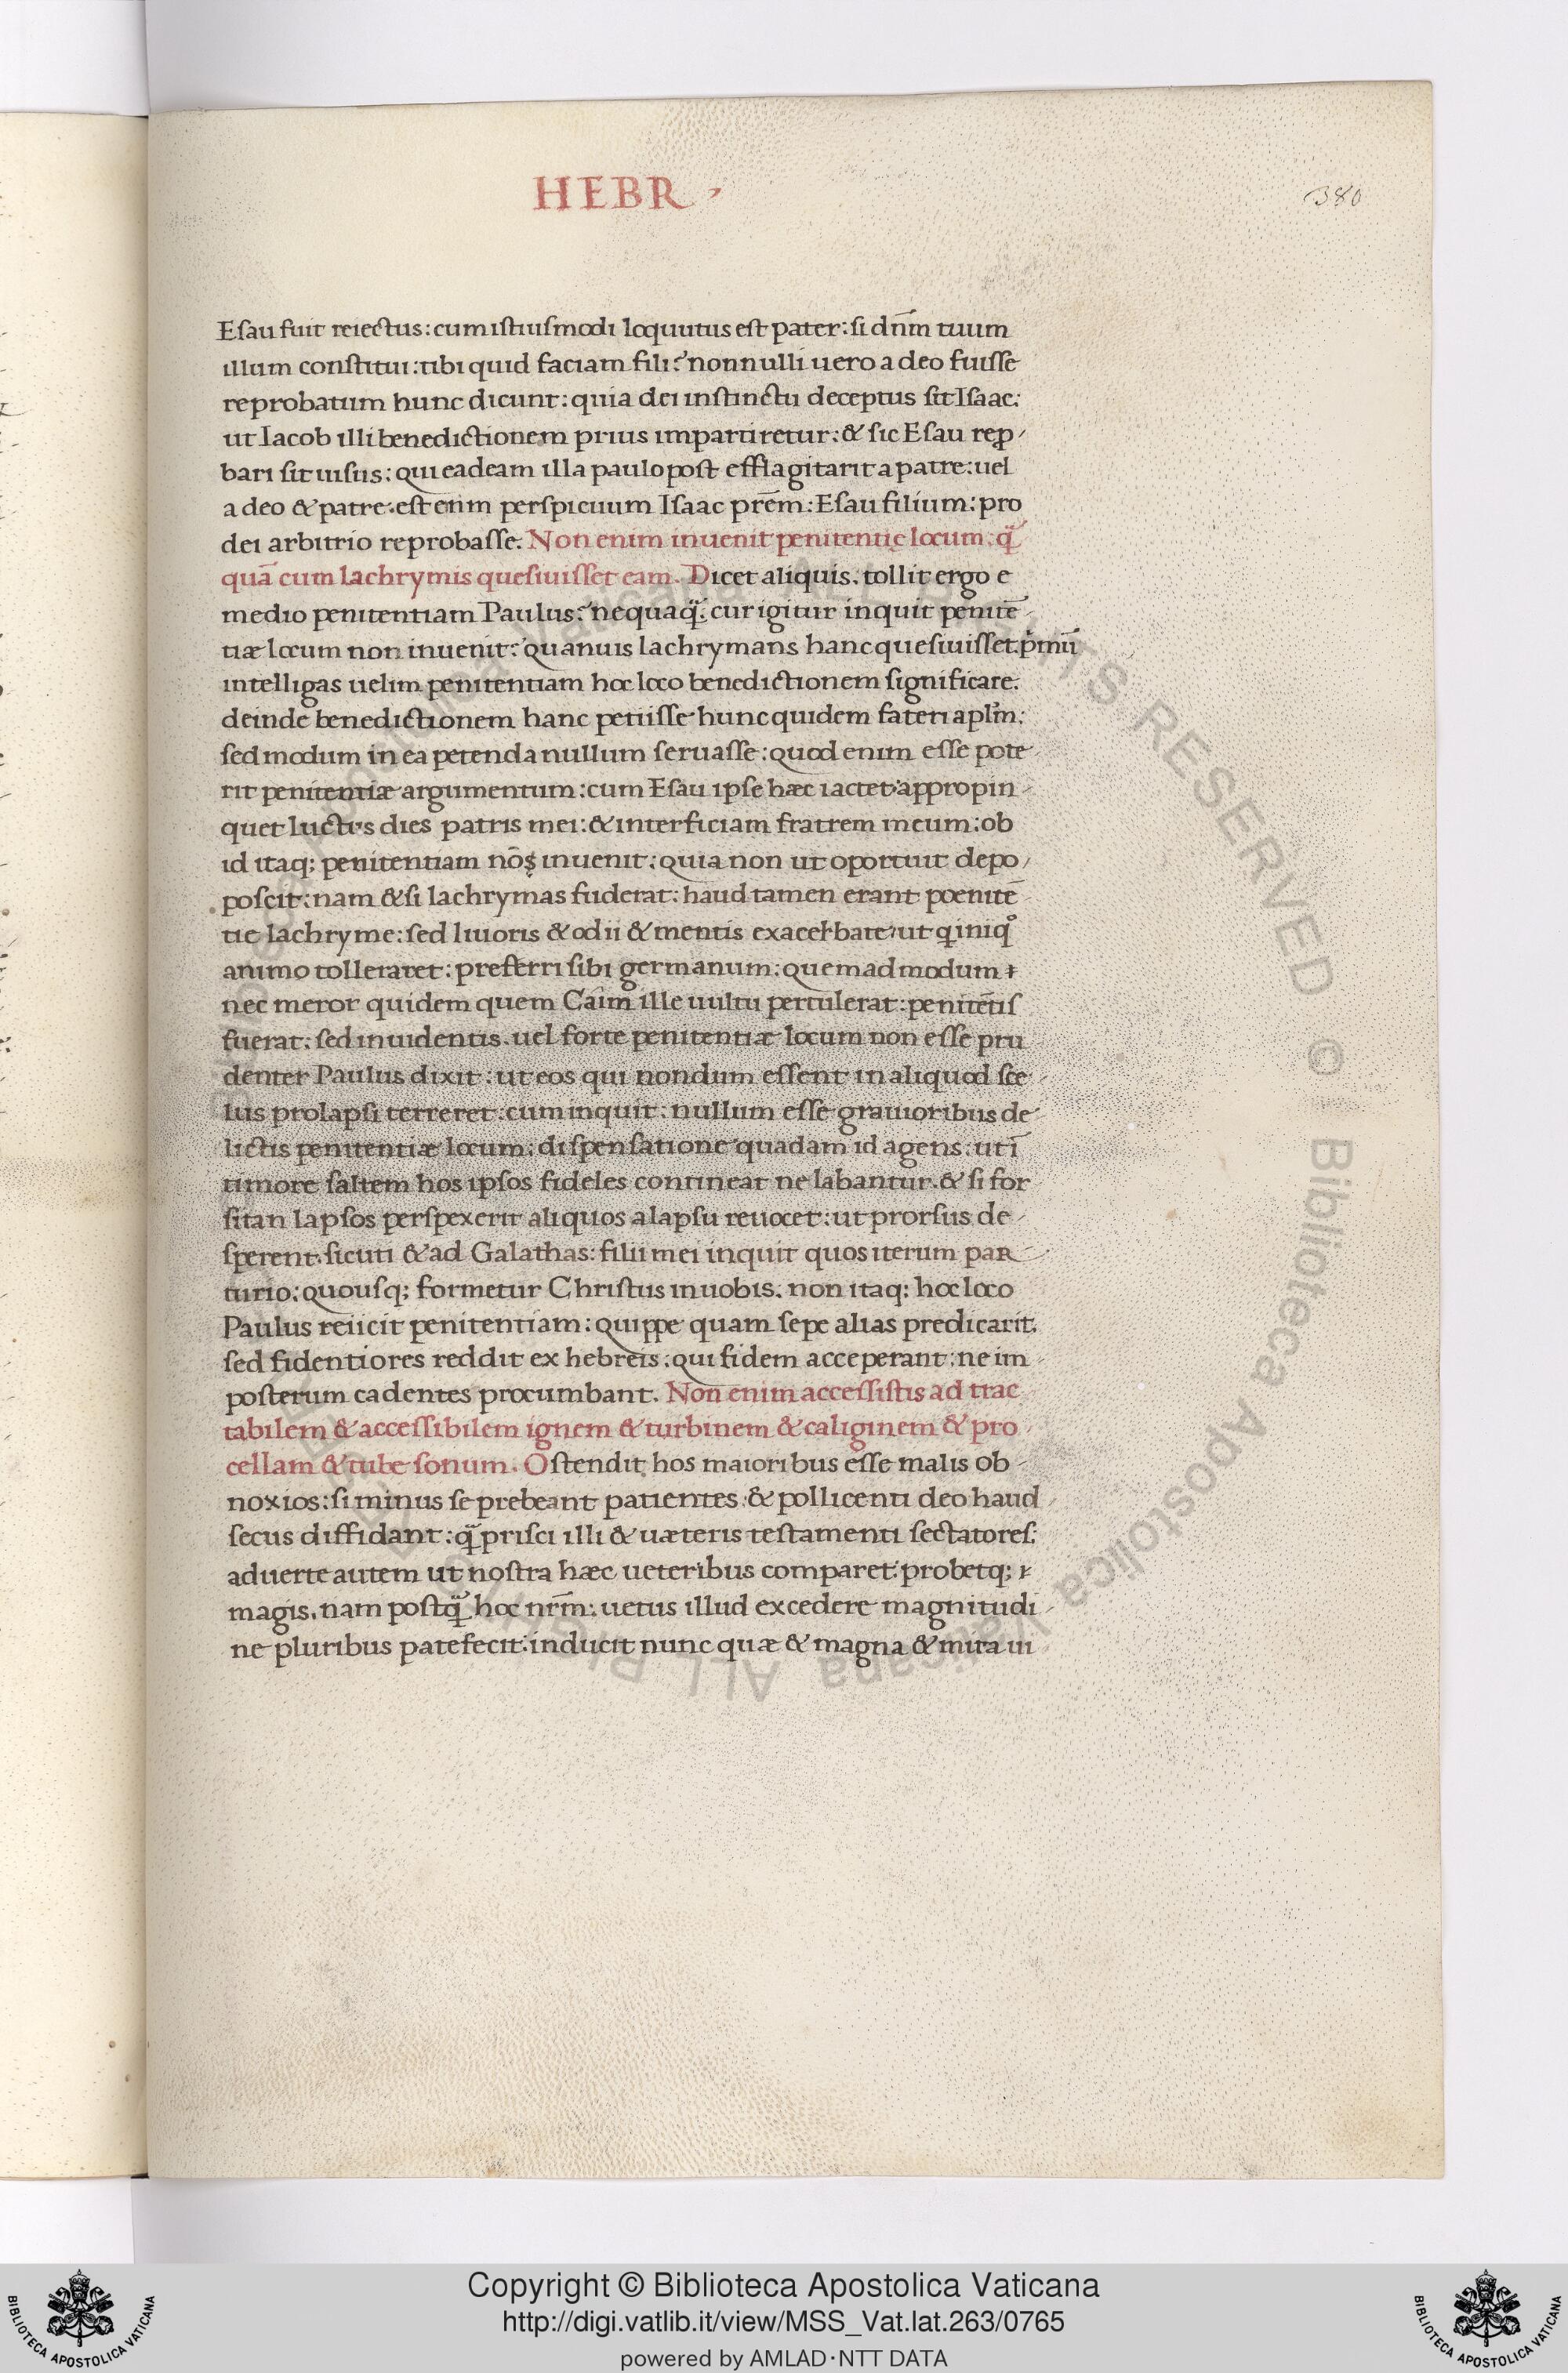 HEBR ,
380
Esau fuit reiectus: cum istiusmodi loquutus est pater: si dn̄m tuum
illum constitui: tibi quid faciam fili? nonnulli uero a deo fuisse
reprobatum hunc dicunt: quia dei instinctu deceptus sit Isaac:
ut Iacob illi benedictionem prius impartiretur: & sic Esau repro-
bari sit uisus: qui eadeam illa paulo post efflagitarit a patre: uel
a deo & patre. est enim perspicuum Isaac prēm: Esau filium: pro
dei arbitrio reprobasse. Non enim inuenit penitentię locum: q̄
quā cum lachrymis quesiuisset eam. Dicet aliquis. tollit ergo e
medio penitentiam Paulus? nequaq̄: cur igitur inquit penitē
tiæ locum non inuenit? quanuis lachrymans hanc quesiuisset. p̄mū
intelligas uelim penitentiam hoc loco benedictionem significare.
deinde benedictionem hanc petiisse hunc quidem fateri apl̄m:
sed modum in ea petenda nullum seruasse: quod enim esse pote-
rit penitentiæ argumentum: cum Esau ipse hæc iactet: appropin-
quet luctus dies patris mei: & interficiam fratrem meum: ob
id itaq; penitentiam nō inuenit: quia non ut oportuit depo-
poscit: nam & si lachrymas fuderat: haud tamen erant poenitē-
tie lachryme: sed liuoris & odii & mentis exacerbate: ut q iniq̊
animo tolleraret: preferri sibi germanum: quemadmodum
nec meror quidem quem Caim ille uultu pertulerat: penitētis
fuerat: sed inuidentis. uel forte penitentiæ locum non esse pru
denter Paulus dixit: ut eos qui nondum essent in aliquod sce-
lus prolapsi terreret: cum inquit: nullum esse grauioribus de-
lictis penitentiæ locum: dispensatione quadam id agens: ut ī
timore saltem hos ipsos fideles contineat ne labantur. & si for
sitan lapsos perspexerit aliquos a lapsu reuocet: ut prorsus de-
sperent. sicuti & ad Galathas: filii mei inquit quos iterum par-
turio: quousq; formetur Christus in uobis. non itaq; hoc loco
Paulus reiicit penitentiam: quippe quam sepe alias predicarit.
sed fidentiores reddit ex hebreis: qui fidem acceperant: ne im-
posterum cadentes procumbant. Non enim accessistis ad trac
tabilem & accessibilem ignem & turbinem & caliginem & pro-
cellam & tube sonum. Ostendit hos maioribus esse malis ob-
noxios: si minus se prebeant patientes: & pollicenti deo haud
secus diffidant: q̄ prisci illi & uæteris testamenti sectatores:
aduerte autem ut nostra hæc ueteribus comparet: probetq;
magis. nam postq̄ hoc nr̄m: uetus illud excedere magnitudi-
ne pluribus patefecit: inducit nunc quæ & magna & mira ui-
Copyright © Biblioteca Apostolica Vaticana
http://digi.vatlib.it/view/MSS_Vat.lat.263/0765
powered by AMLAD·NTT DATA